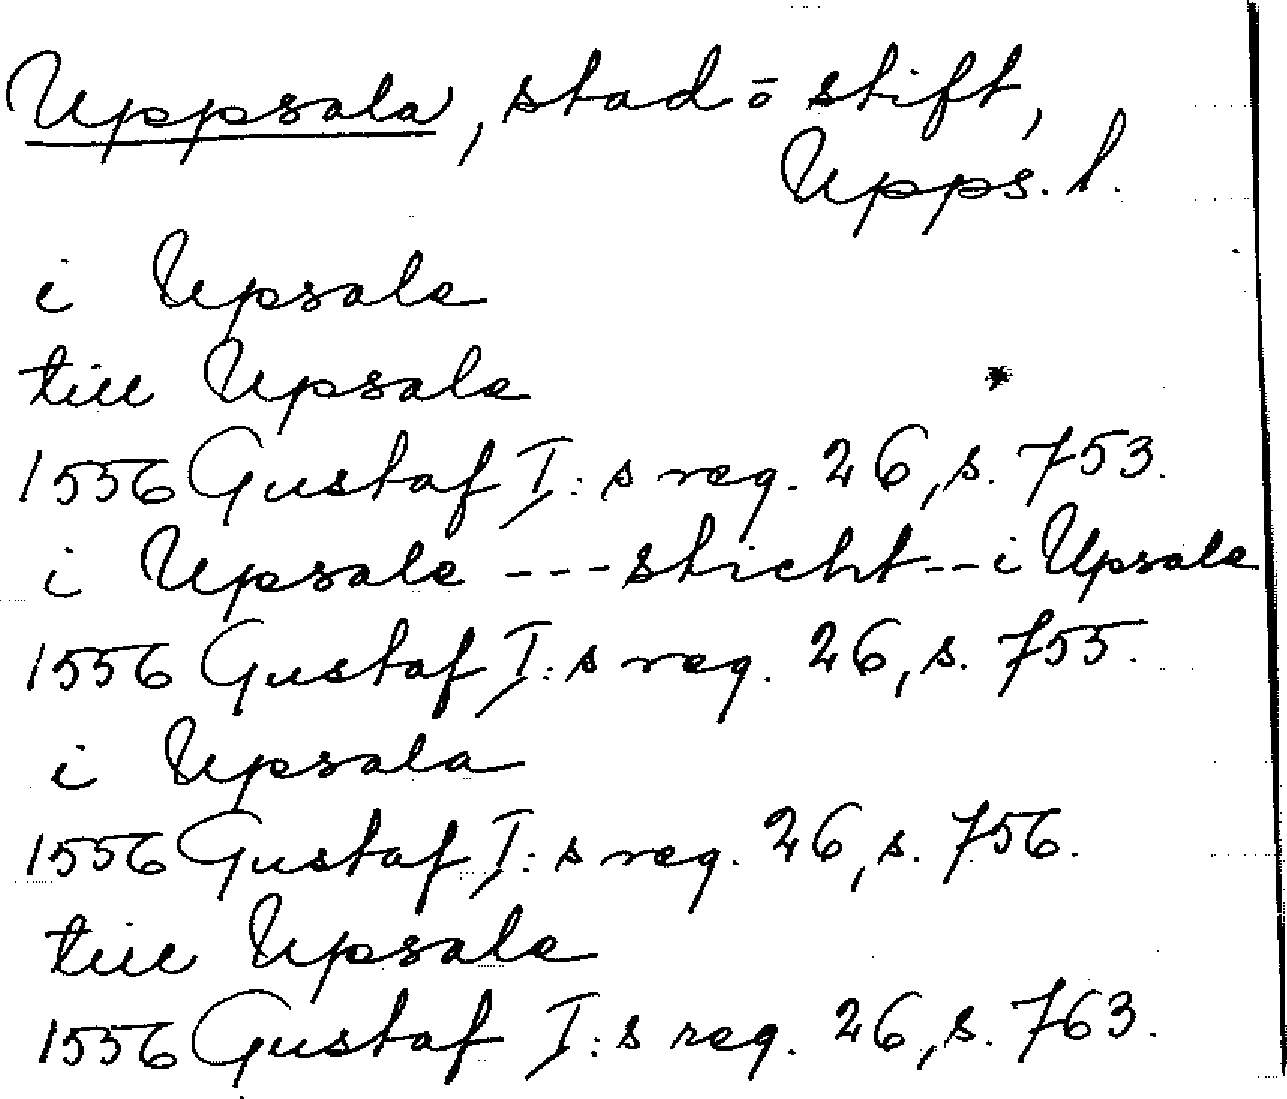 Uppsala, stad ō stift,
Upps. l.
i Upsale
till Upsale
1556 Gustaf I:s reg. 26, s. 753.
i Upsale --- sticht -- i Upsale
1556 Gustaf I:s reg. 26, s. 755.
i Upsala
1556 Gustaf I:s reg. 26, s. 756.
till Upsale
1556 Gustaf I:s reg. 26, s. 763.